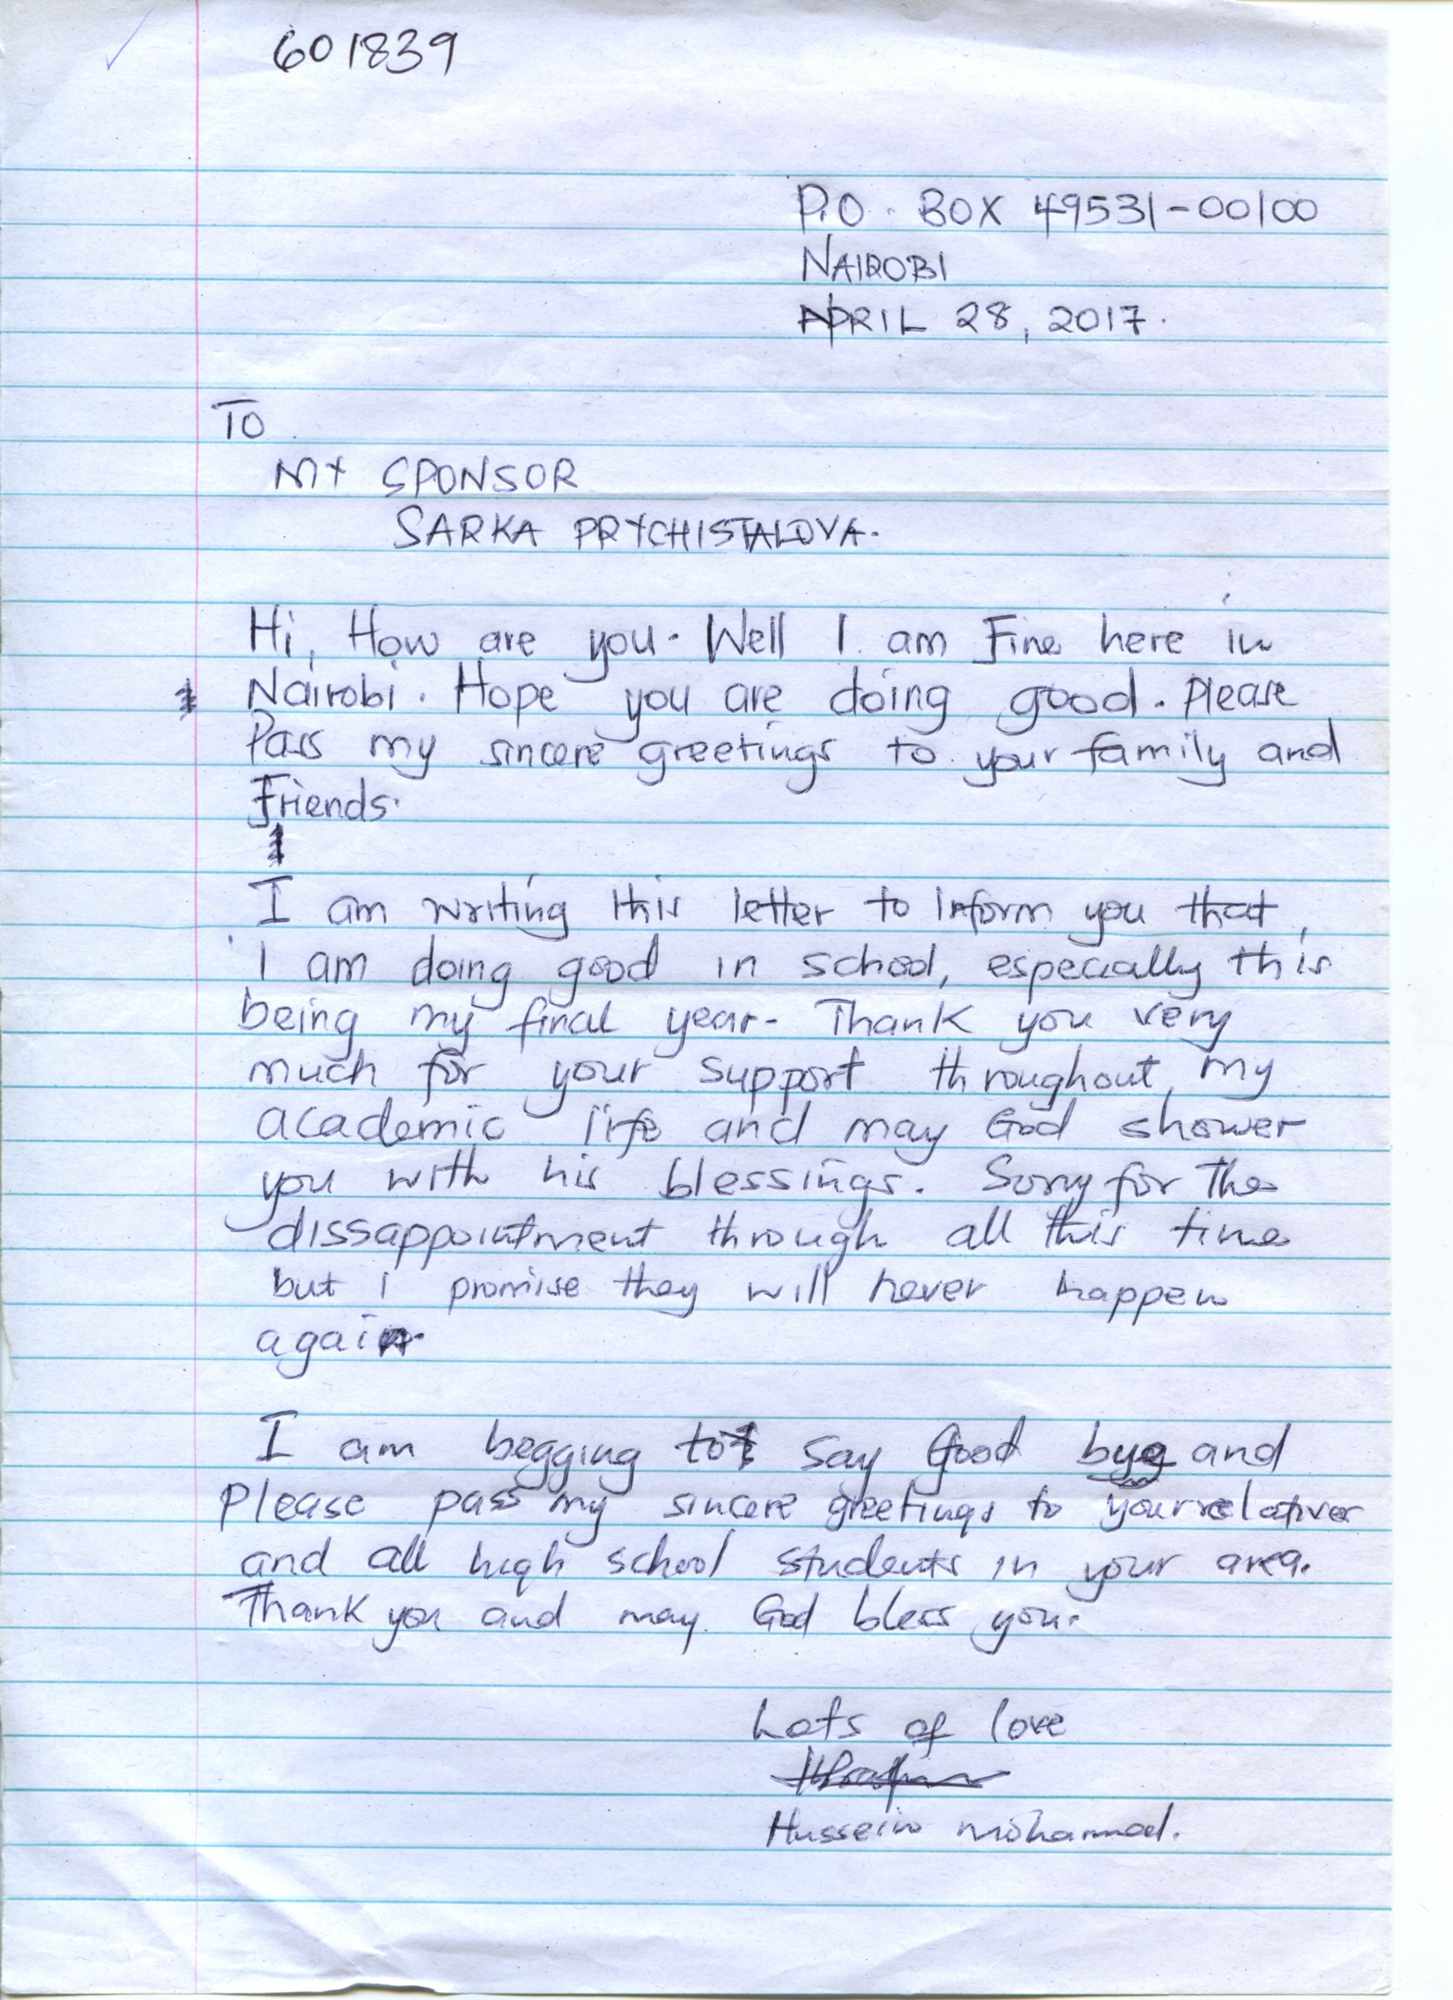 601839
P.O. BOX 49531-00100
NAIROBI
APRIL 28, 2017.
TO
MY SPONSOR
SARKA PRYCHISTALOVA.
Hi, How are you. Well I am Fine here in
Nairobi. Hope you are doing good. Please
Pass my sincere greetings to your family and
Friends.
I am writing this letter to inform you that,
I am doing good in school, especially this
being my final year. Thank you very
much for your support throughout my
academic life and may God shower
you with his blessings. Sorry for the
dissappointment through all this time
but i promise they will never happen
again.
I am begging to say Good bye and
Please pass my sincere greetings to your relatives
and all high school students in your area.
Thank you and may God bless you.
Lots of love
Hussein Mohammed.